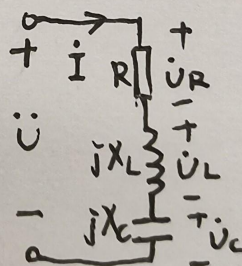 +
İ
R
+
U̇R
−
U̇
jXL
+
U̇L
−
jXC
+
U̇C
−
−